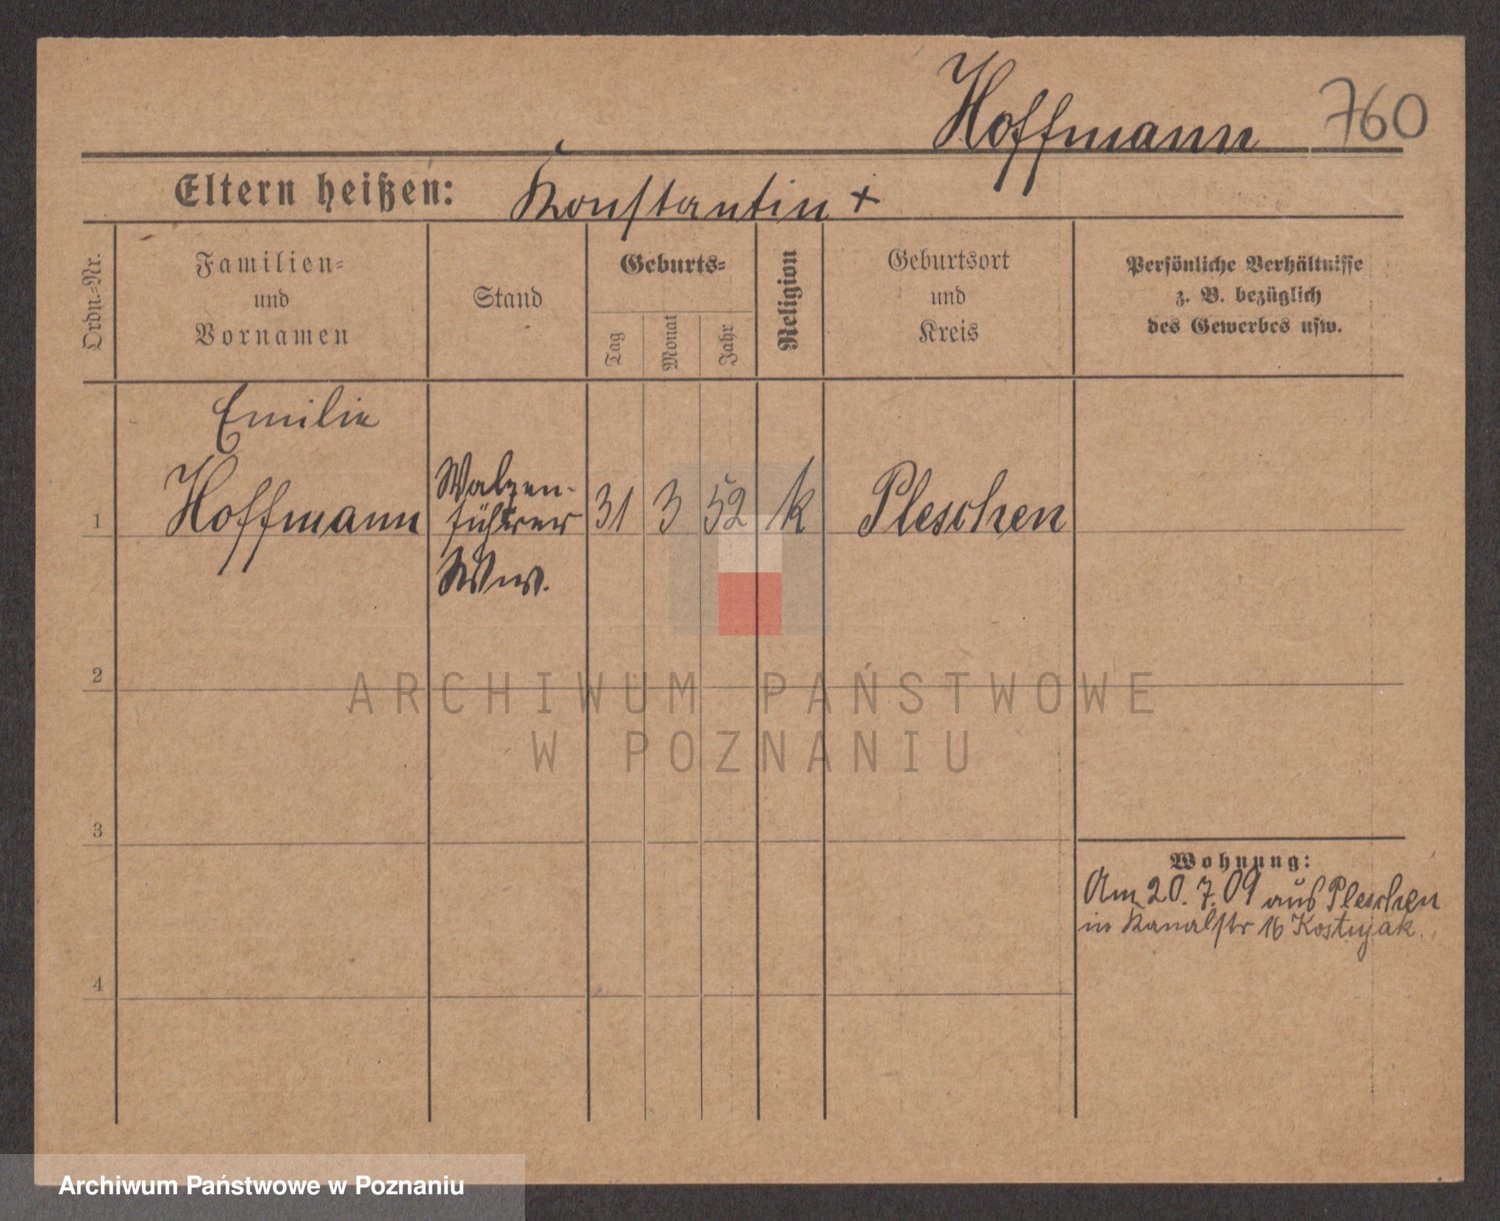 Hoffmann 760
Eltern heißen: Konstantin +
Ordn.-Nr.
Familien-
und
Vornamen
Stand
Geburts-
Tag
Monat
Jahr
Religion
Geburtsort
und
Kreis
Persönliche Verhältnisse
z. B. bezüglich
des Gewerbes usw.
Emilie
1 Hoffmann
Walzen-
führer
Ww.
31 3 52 k Pleschen
2
ARCHIWUM PAŃSTWOWE
W POZNANIU
3
Wohnung:
Am 20.7.09 aus Pleschen
in Kanalstr 16 Kostujak.
4
Archiwum Państwowe w Poznaniu